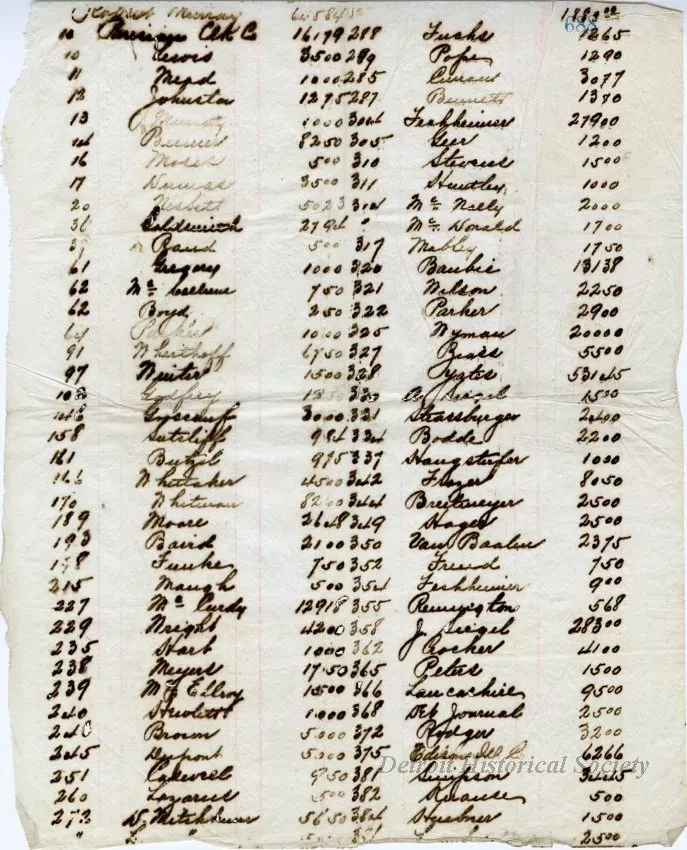 Murray
688
10 Business Clk Co 16179 288 Fuchs 1265
10 Lewis 3500 289 Pope 1290
11 Mead 1000 285 3077
12 Johnston 1275 287 Burnett 1370
13 1000 304 Feckheimer 27900
14 8250 305 Geer 1200
16 Moses 500 310 Stevens 1500
17 3500 311 Huntley 1000
20 Nesbitt 5023 314 Mc Nally 2000
36 Goldsmith 2794 " Mc Donald 1700
Rand 500 317 Mabley 1750
61 Gregory 1000 320 Baubie 13138
62 750 321 Wilson 2250
62 Boyd 250 322 Parker 2900
64 1000 325 Nyman 20000
91 6750 327 5500
97 1500 328 Yates 53145
Godfrey Siegel 1500
3000 331 Strassburger 2400
158 Sutcliff 984 334 Bodde 2200
161 975 337 1000
166 Whittaker 4500 342 Frazer 8050
170 Whitman 8200 344 Breitmeyer 2500
189 Moore 2648 349 Hager 2500
193 Baird 2100 350 Van Baalen 2375
198 Funke 750 352 Freud 750
215 Maugh 500 354 Feckheimer 900
227 Mc Curdy 12918 355 Remington 568
229 Wright 4200 358 J. Siegel 28300
235 Hart 1000 362 Crocker 4100
238 Meyers 1750 365 Peters 1500
239 Mc Ellroy 1500 366 Lancashire 9500
240 Hewlett 1000 368 Det Journal 2500
Brown 5000 372 Rodger 3200
245 5000 375 6266
251 950 381 Simpson 3445
260 Lazarus 500 382 Krause 500
273 5650 384 Huebner 1500
" 2500
Detroit Historical Society